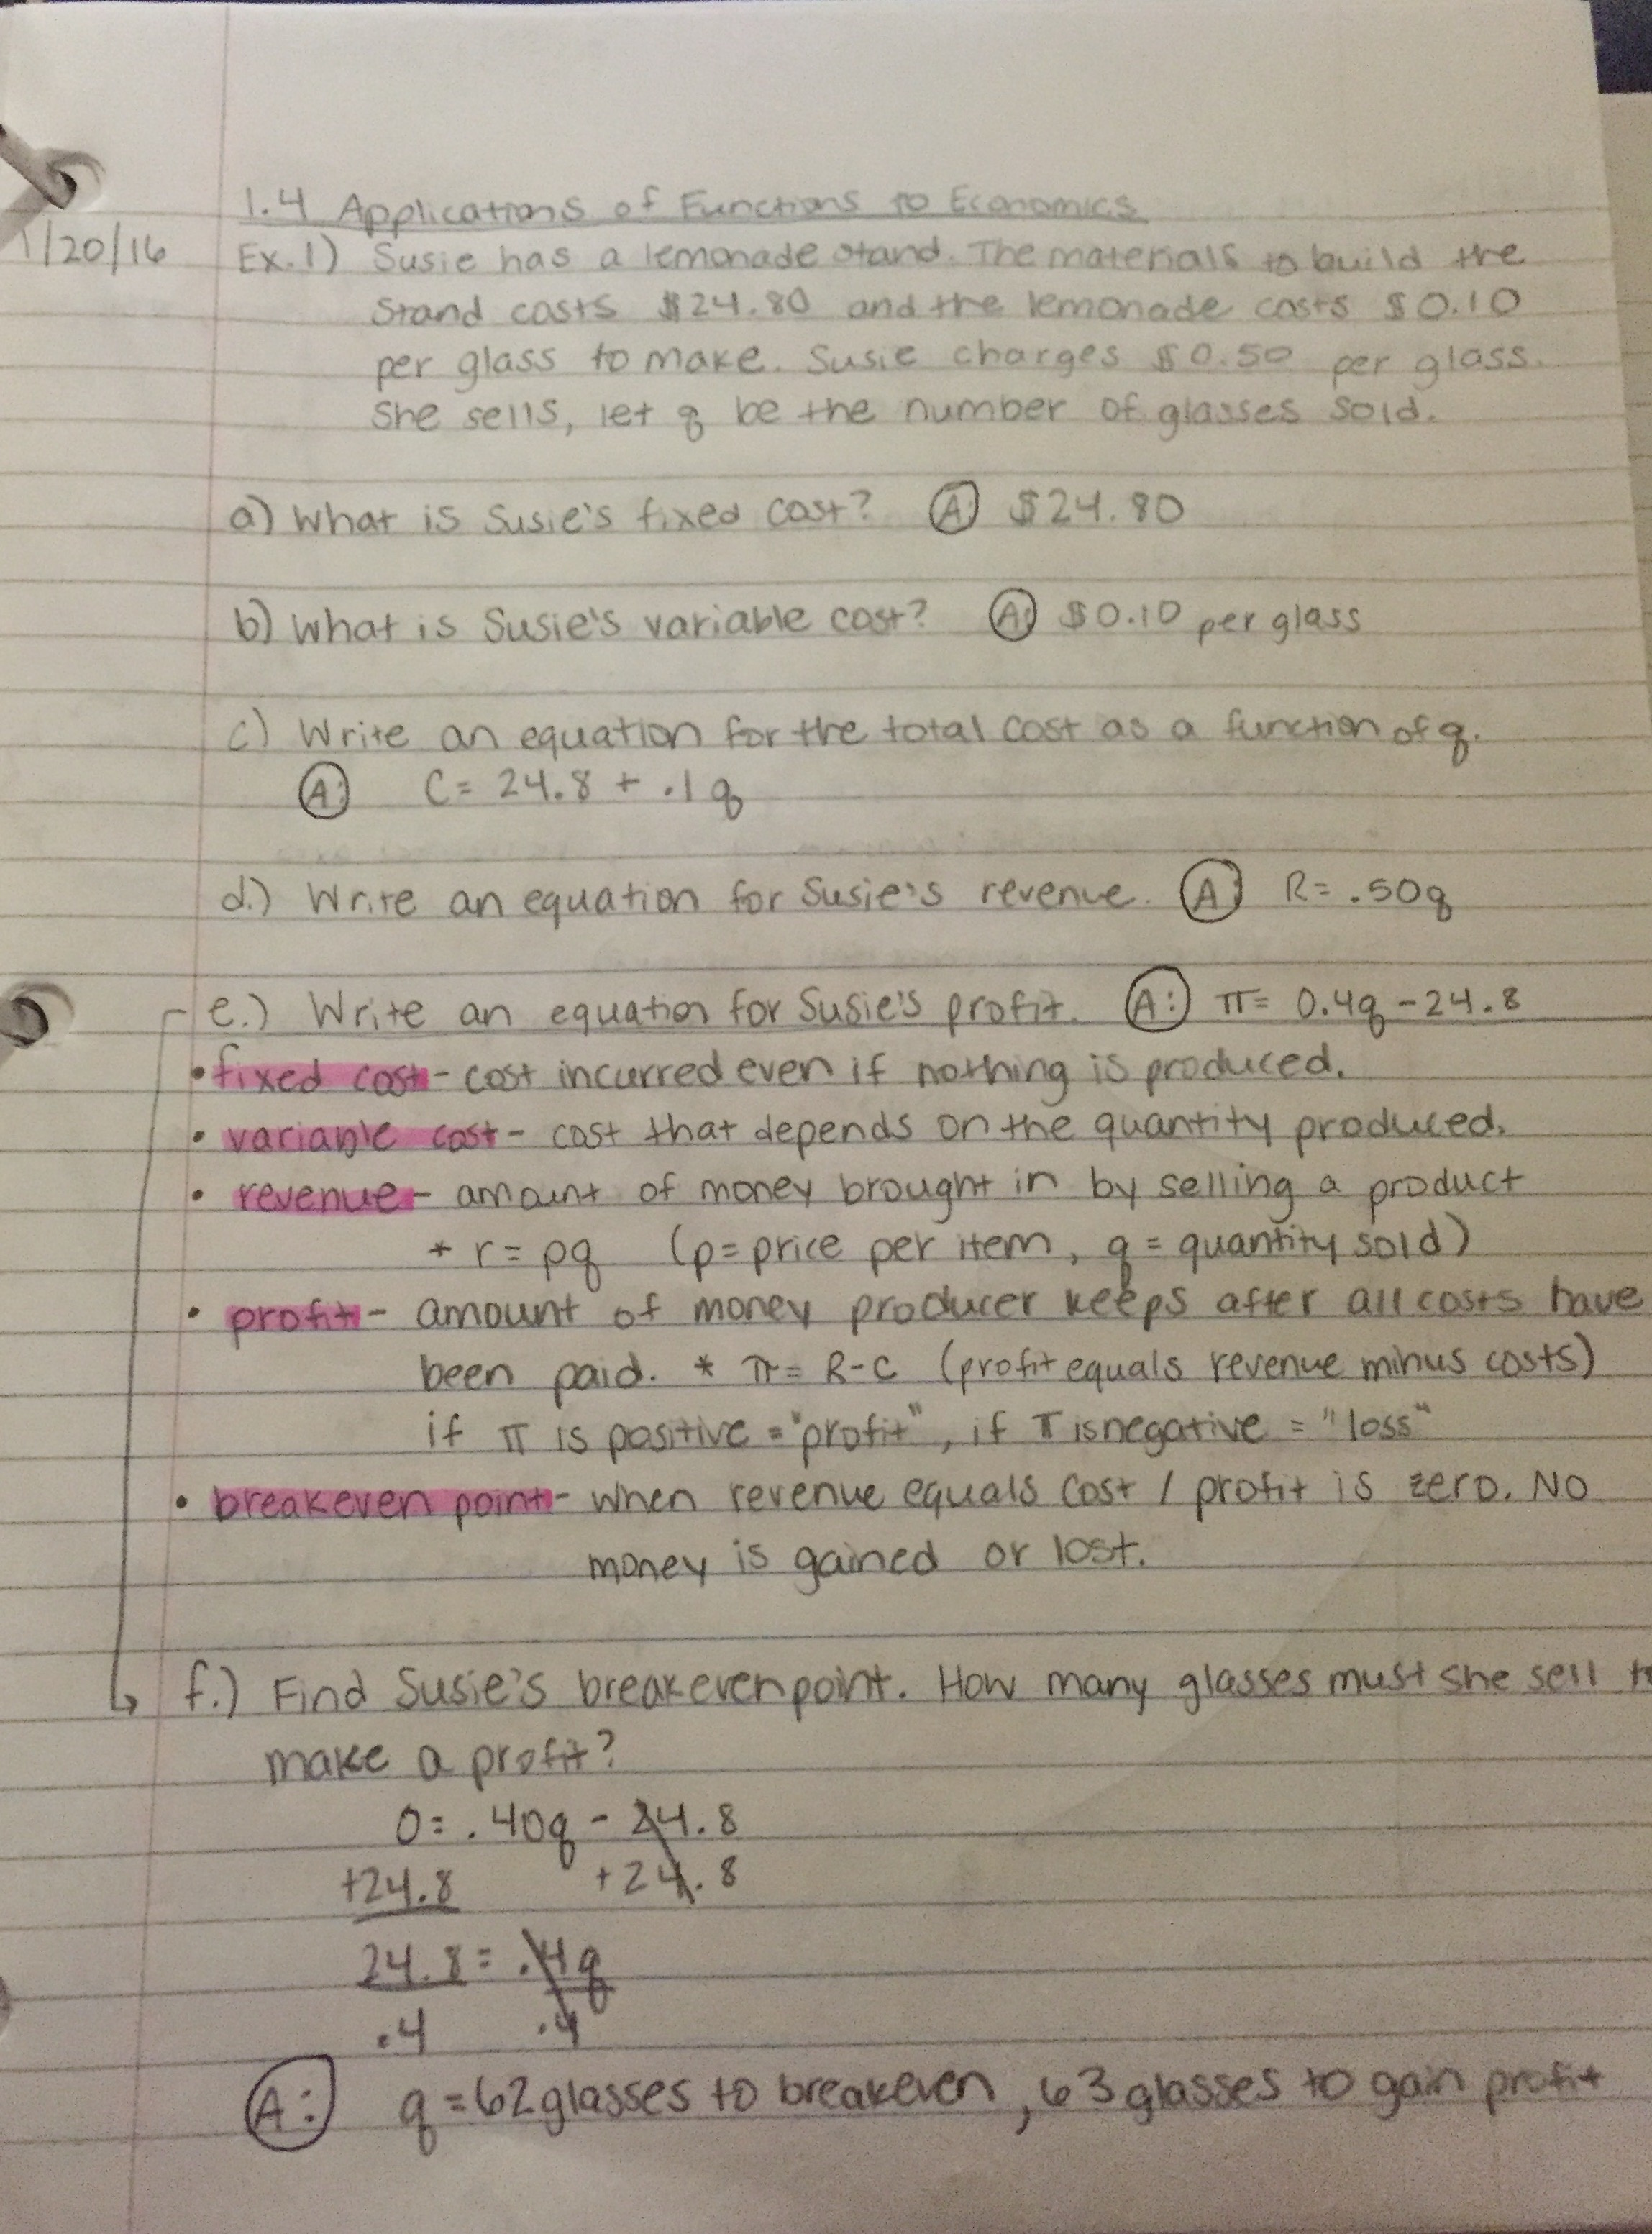 1.4 Applications of Functions to Economics
1/20/16
Ex.1) Susie has a lemonade stand. The materials to build the
stand costs $24.80 and the lemonade costs $0.10
per glass to make. Susie charges $0.50 per glass.
She sells, let q be the number of glasses sold.
a) What is Susie's fixed cost? A: $24.80
b) What is Susie's variable cost? A: $0.10 per glass
c) Write an equation for the total cost as a function of q.
A: C= 24.8 + .1q
d.) Write an equation for Susie's revenue. A: R= .50q
e.) Write an equation for Susie's profit. A: π= 0.4q - 24.8
• fixed cost - cost incurred even if nothing is produced.
• variable cost - cost that depends on the quantity produced.
• revenue - amount of money brought in by selling a product
* r = pq (p=price per item, q = quantity sold)
• profit - amount of money producer keeps after all costs have
been paid. * π = R-C (profit equals revenue minus costs)
if π is positive = "profit", if π is negative = "loss"
• breakeven point - when revenue equals cost / profit is zero. No
money is gained or lost.
f.) Find Susie's breakeven point. How many glasses must she sell
make a profit?
0= .40q - 24.8
+24.8 +24.8
24.8 = .4q
.4 .4
A: q = 62 glasses to breakeven, 63 glasses to gain profit